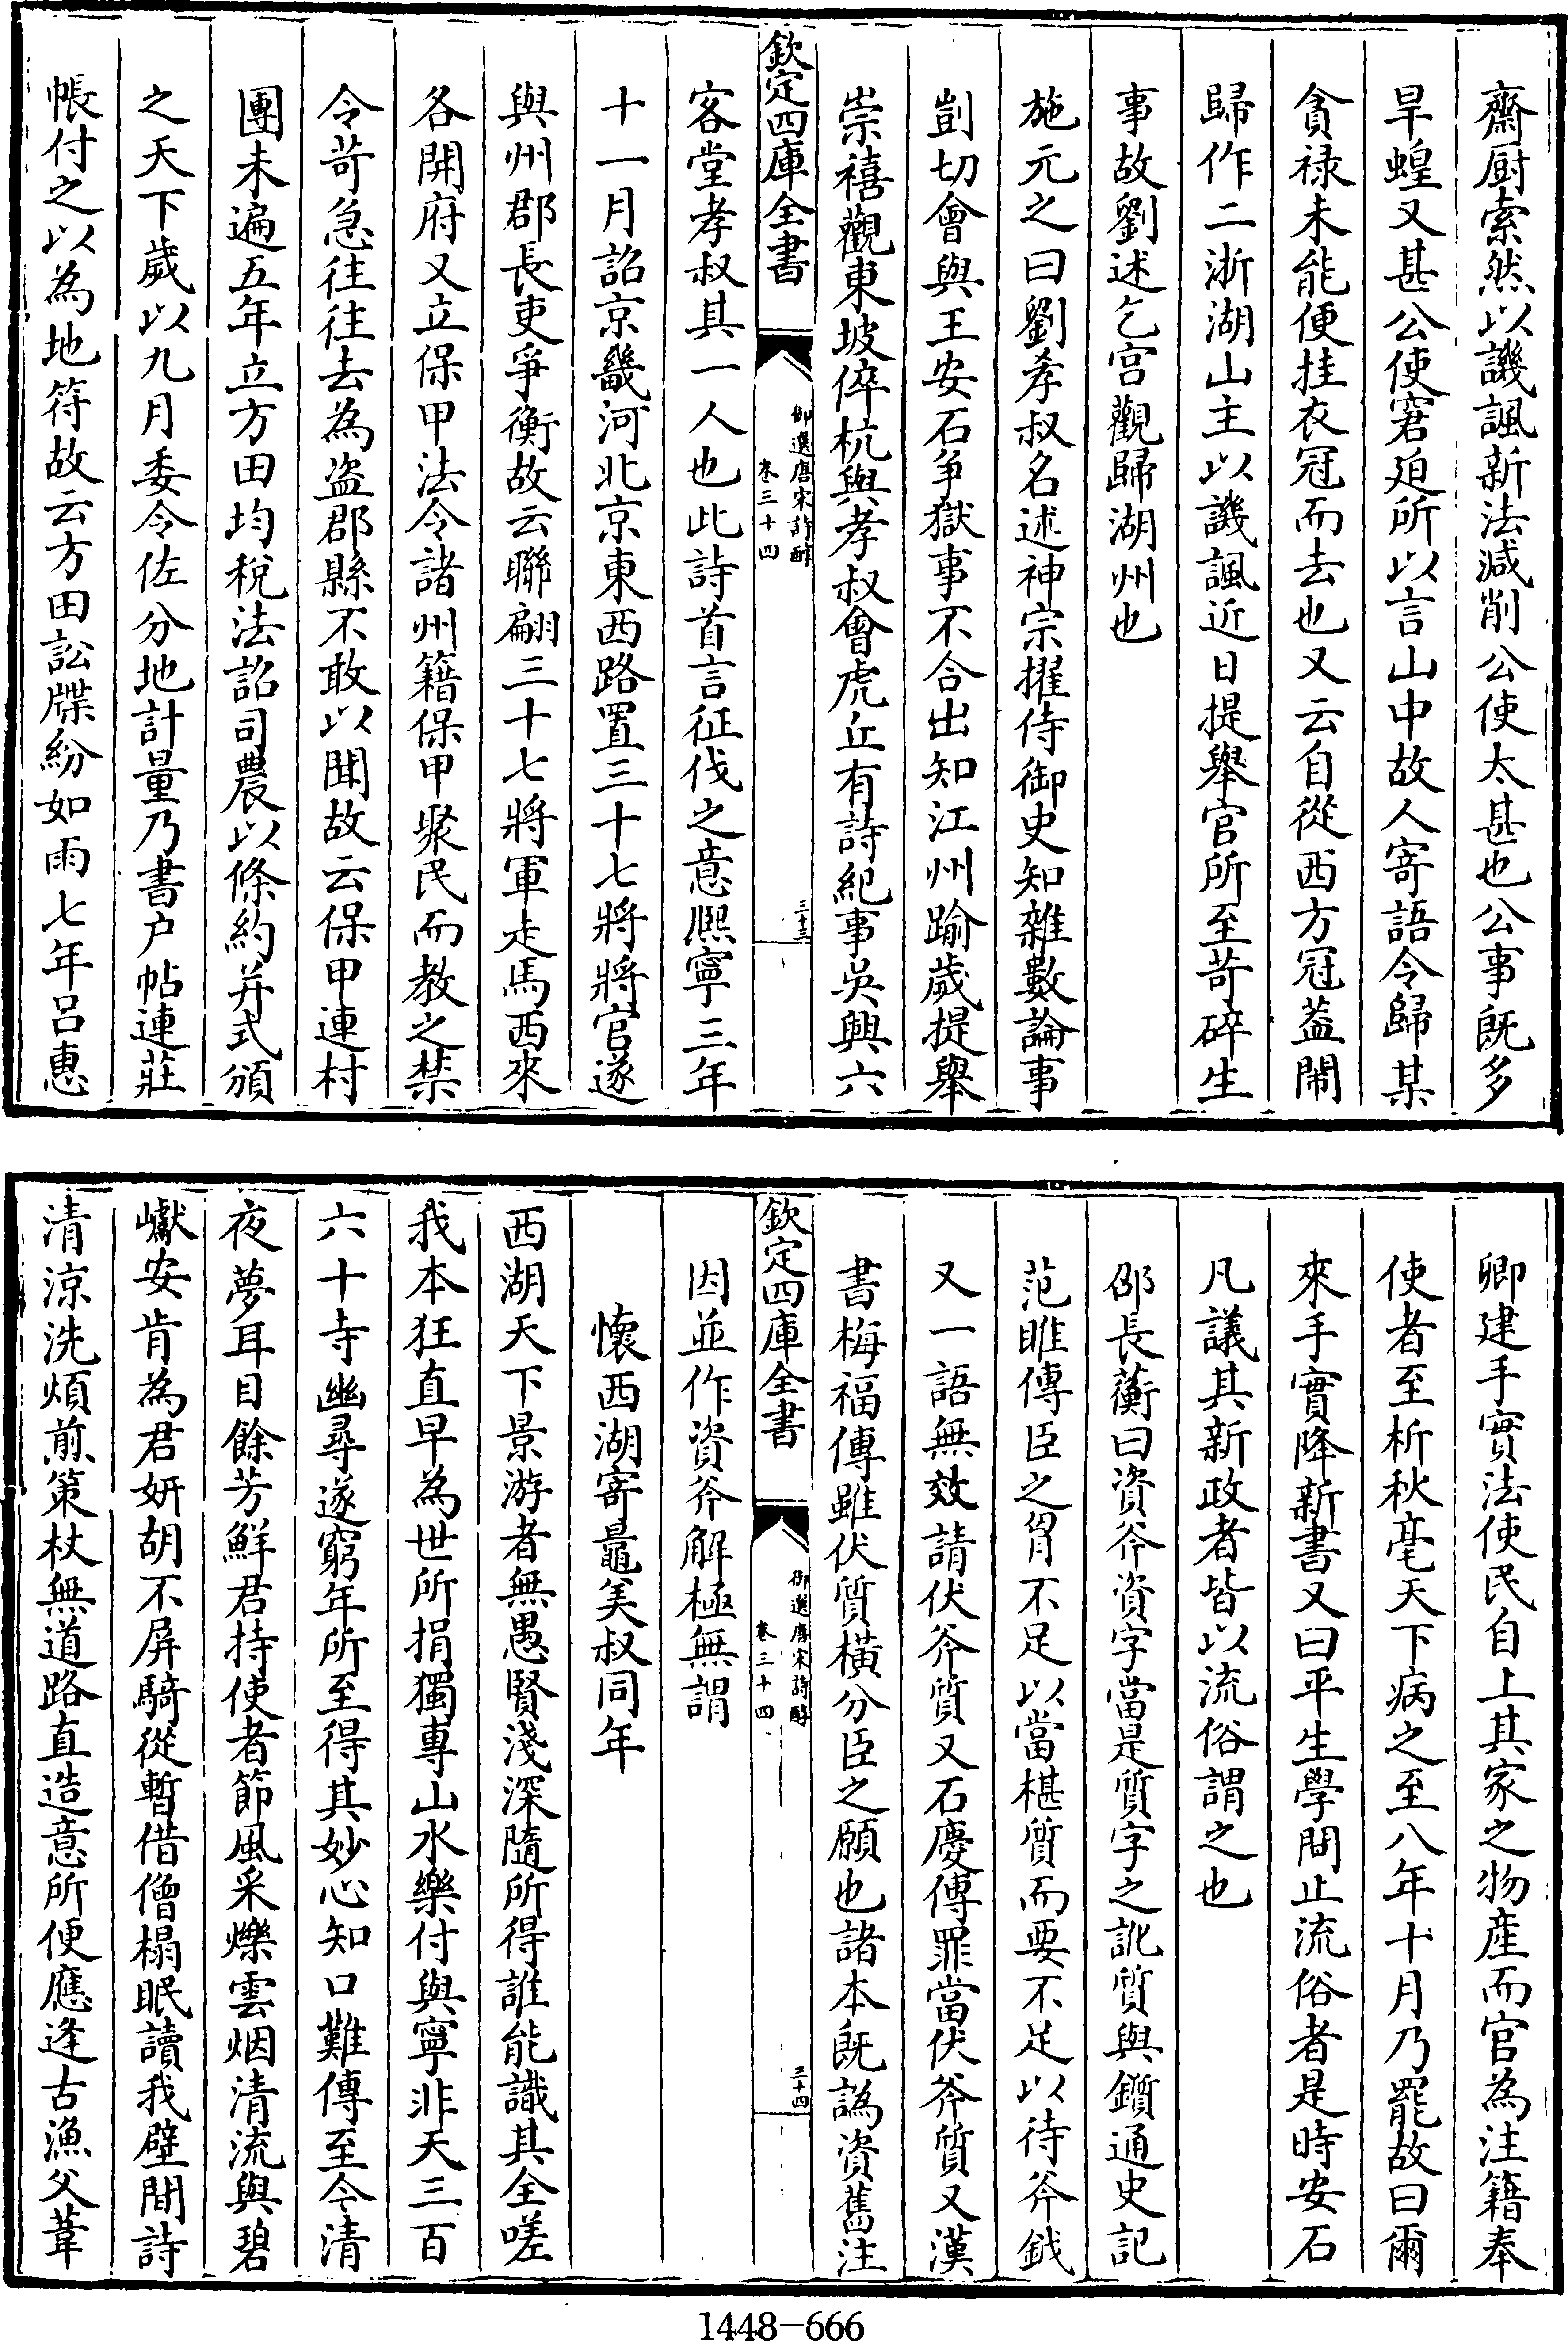 齋厨索然以譏諷新法減削公使太甚也公事既多
旱蝗又甚公使窘廹所以言山中故人寄語令歸某
貪祿未能便挂衣冠而去也又云自從西方冠蓋鬧
歸作二浙湖山主以譏諷近日提舉官所至苛碎生
事故劉述乞宫觀歸湖州也
施元之曰劉孝叔名述神宗擢侍御史知雜數論事
剴切會與王安石争獄事不合出知江州踰歲提舉
崇禧觀東坡倅杭與孝叔會虎丘有詩紀事吳興六
欽定四庫全書
御選唐宋詩醇
卷三十四
三十三
客堂孝叔其一人也此詩首言征伐之意熙寧三年
十一月詔京畿河北京東西路置三十七將將官遂
與州郡長吏爭衡故云聯翩三十七將軍走馬西來
各開府又立保甲法令諸州籍保甲聚民而教之禁
令苛急往往去為盗郡縣不敢以聞故云保甲連村
團未遍五年立方田均稅法詔司農以條約并式頒
之天下歲以九月委令佐分地計量乃書户帖連莊
帳付之以為地符故云方田訟牒紛如雨七年吕惠
卿建手實法使民自上其家之物産而官為注籍奉
使者至析秋毫天下病之至八年十月乃罷故曰爾
來手實降新書又曰平生學問止流俗者是時安石
凡議其新政者皆以流俗謂之也
邵長蘅曰資斧資字當是質字之訛質與鑕通史記
范睢傳臣之胷不足以當椹質而要不足以待斧鉞
又一語無效請伏斧質又石慶傳罪當伏斧質又漢
書梅福傳雖伏質橫分臣之願也諸本既譌資舊注
欽定四庫全書
御選唐宋詩醇
卷三十四
三十四
因並作資斧解極無謂
懷西湖寄鼂美叔同年
西湖天下景游者無愚賢淺深隨所得誰能識其全嗟
我本狂直早為世所捐獨專山水樂付與寧非天三百
六十寺幽尋遂窮年所至得其妙心知口難傳至今清
夜夢耳目餘芳鮮君持使者節風采爍雲烟清流與碧
巘安肯為君妍胡不屏騎從暫借僧榻眠讀我壁間詩
清涼洗煩煎策杖無道路直造意所便應逢古漁父葦
1448-666